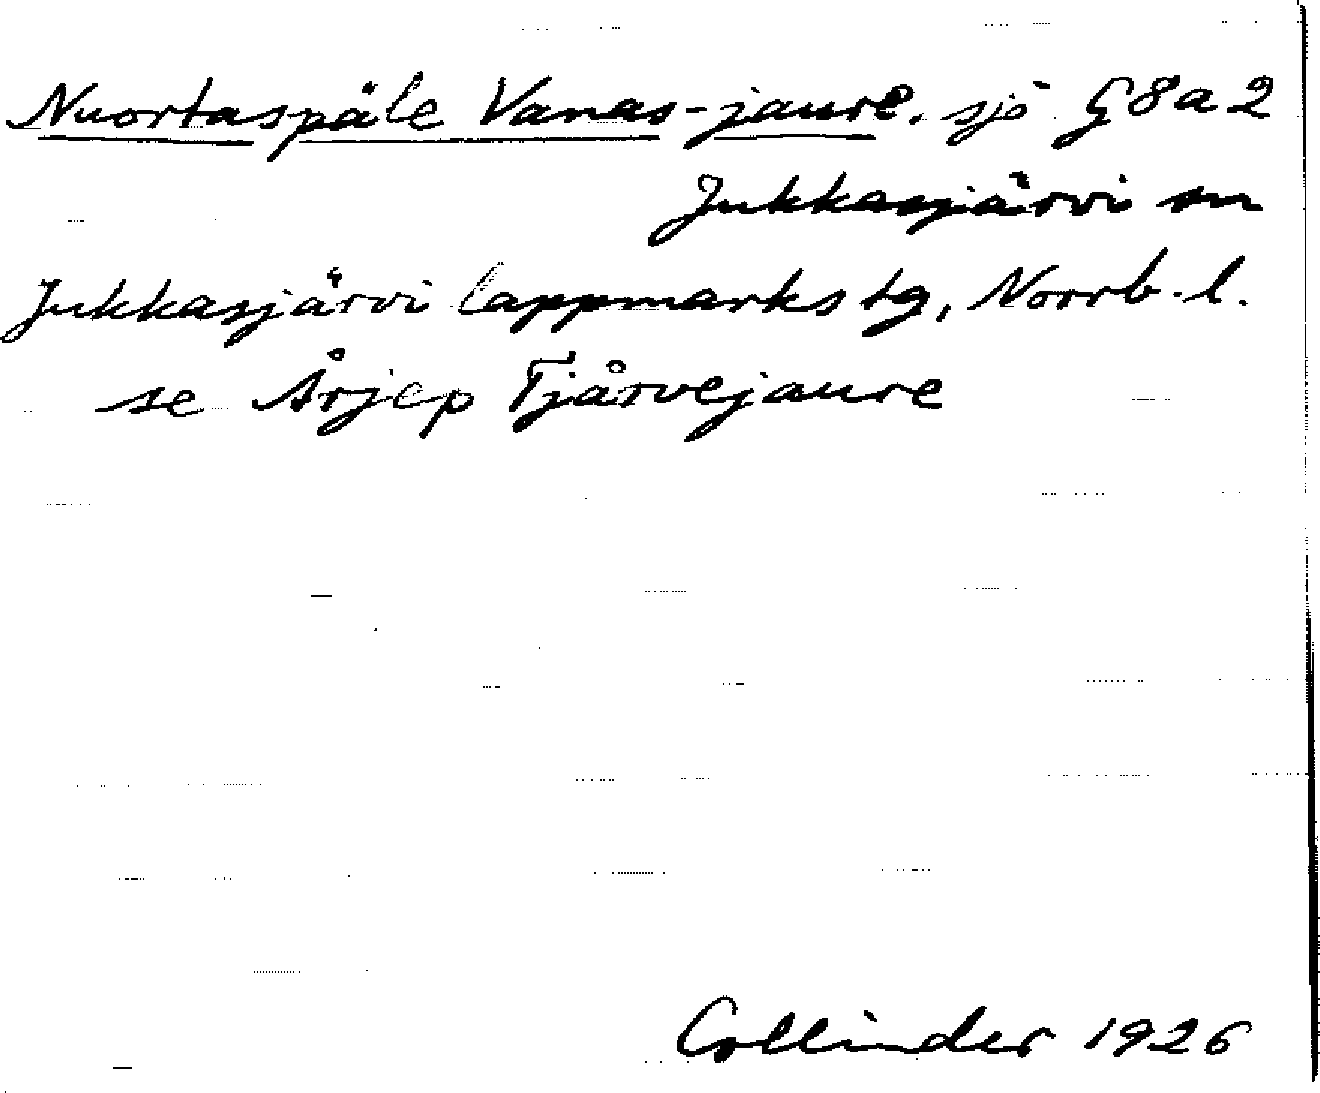 Nuortaspäle Vanas-jaure. sjö G8a2
Jukkasjärvi sn
Jukkasjärvi lappmarks tg, Norrb. l.
se Årjep Tjårvejaure
Collinder 1926